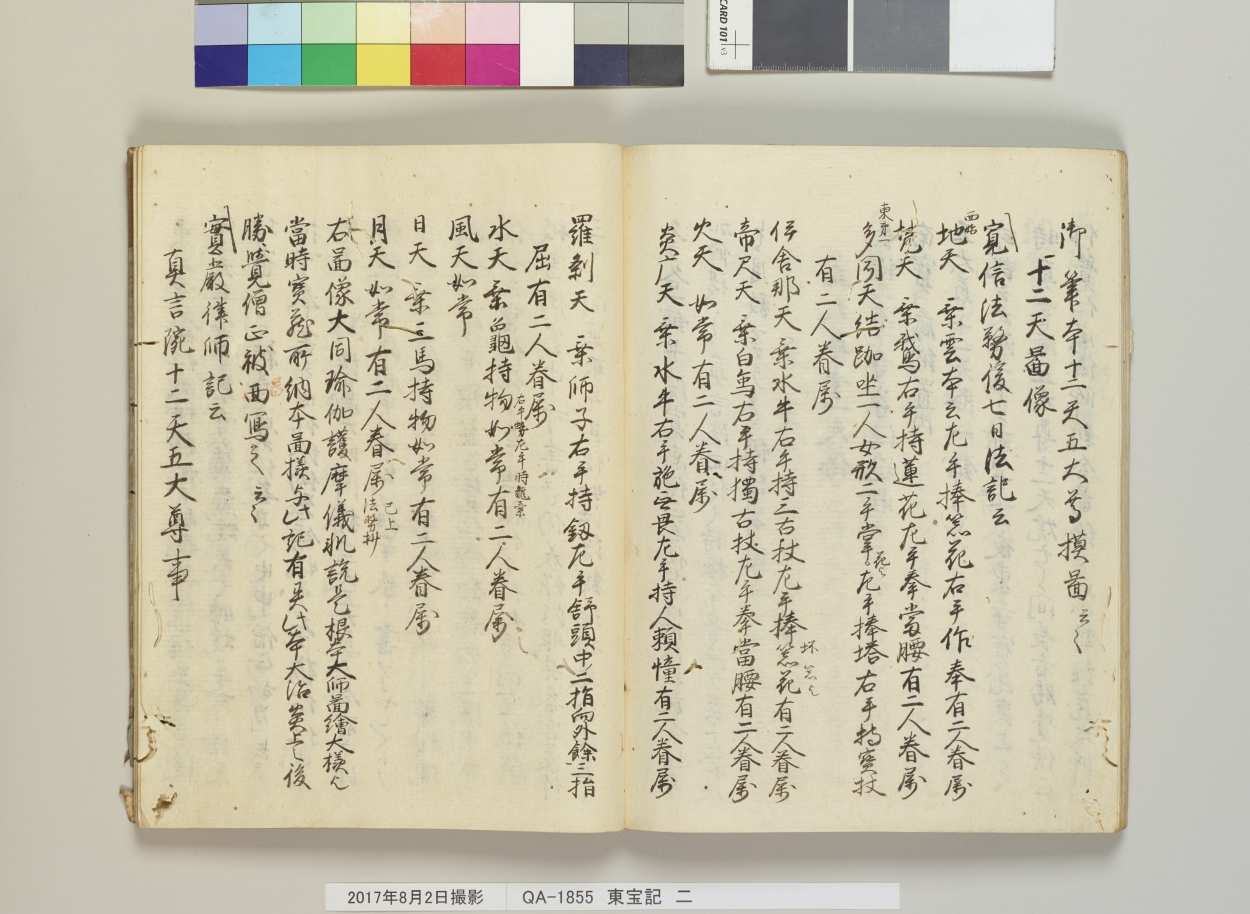 御筆本十二天五大尊摸圖云々
十二天圖像
寛信法務後七日法記云
西
地天 乗雲本云左手捧盆花右手作拳有二人眷属
梵天 乗鵞右手持蓮花左手拳當腰有二人眷属
東第一
多聞天結跏坐一人女形一手掌花左手捧塔右手持寶杖
有二人眷属
伊舎那天乗水牛右手持三古杖左手捧盆花有二人眷属
帝尺天 乗白象右手持獨古杖左手拳當腰有二人眷属
火天 如常有二人眷属
炎广天 乗水牛右手施無畏左手持人頭幢有二人眷属
羅刹天 乗師子右手持釼左手舒頭中二指向外餘三指
屈有二人眷属
水天 乗龜持物如常有二人眷属
風天如常
日天 乗三馬持物如常有二人眷属
月天 如常有二人眷属 已上法務抄
右圖像大同瑜伽護摩儀軌説是根本大師圖繪大様也
當時寳蔵所納本圖様与此記有異此本大治炎上之後
勝覺僧正被画寫之云々
實嚴律師記云
真言院十二天五大尊事
2017年8月2日撮影 QA-1855 東宝記 二
CARD 101 v3